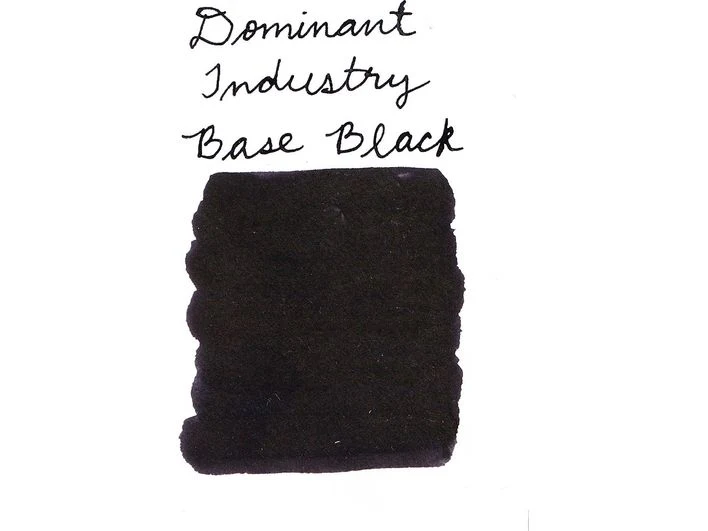 Dominant
Industry
Base Black